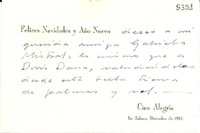 5351
Felices Navidades y Año Nuevo deseo a mi
querida amiga Gabriela
Mistral, lo mismo que a
Doris Dana, saludándolas
desde esta tierra
de palmas y sol.
Ciro Alegría
La Habana, Diciembre de 1953